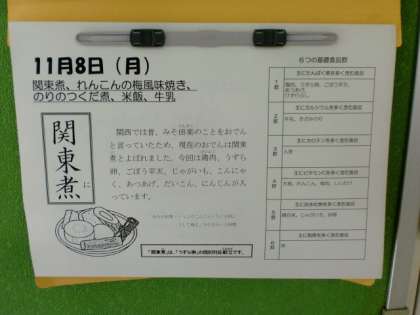 11月8日(月)
関東煮、れんこんの梅風味焼き、
のりのつくだ煮、米飯、牛乳
関東煮に
関西では昔、みそ田楽のことをおでん
と言っていたため、現在のおでんは関東
煮とよばれました。今回は鶏肉、うずら
卵、ごぼう平天、じゃがいも、こんにゃ
く、あつあげ、だいこん、にんじんが入
っています。
「関東煮」は、「うずら卵」の個別対応献立です。
6つの基礎食品群
1群
主にたんぱく質を多く含む食品
鶏肉、うずら卵、ごぼう平天、
あつあげ
2群
主にカルシウムを多く含む食品
3群
主にカロテンを多く含む食品
4群
主にビタミンCを多く含む食品
5群
主に炭水化物を多く含む食品
6群
主に脂肪を多く含む食品